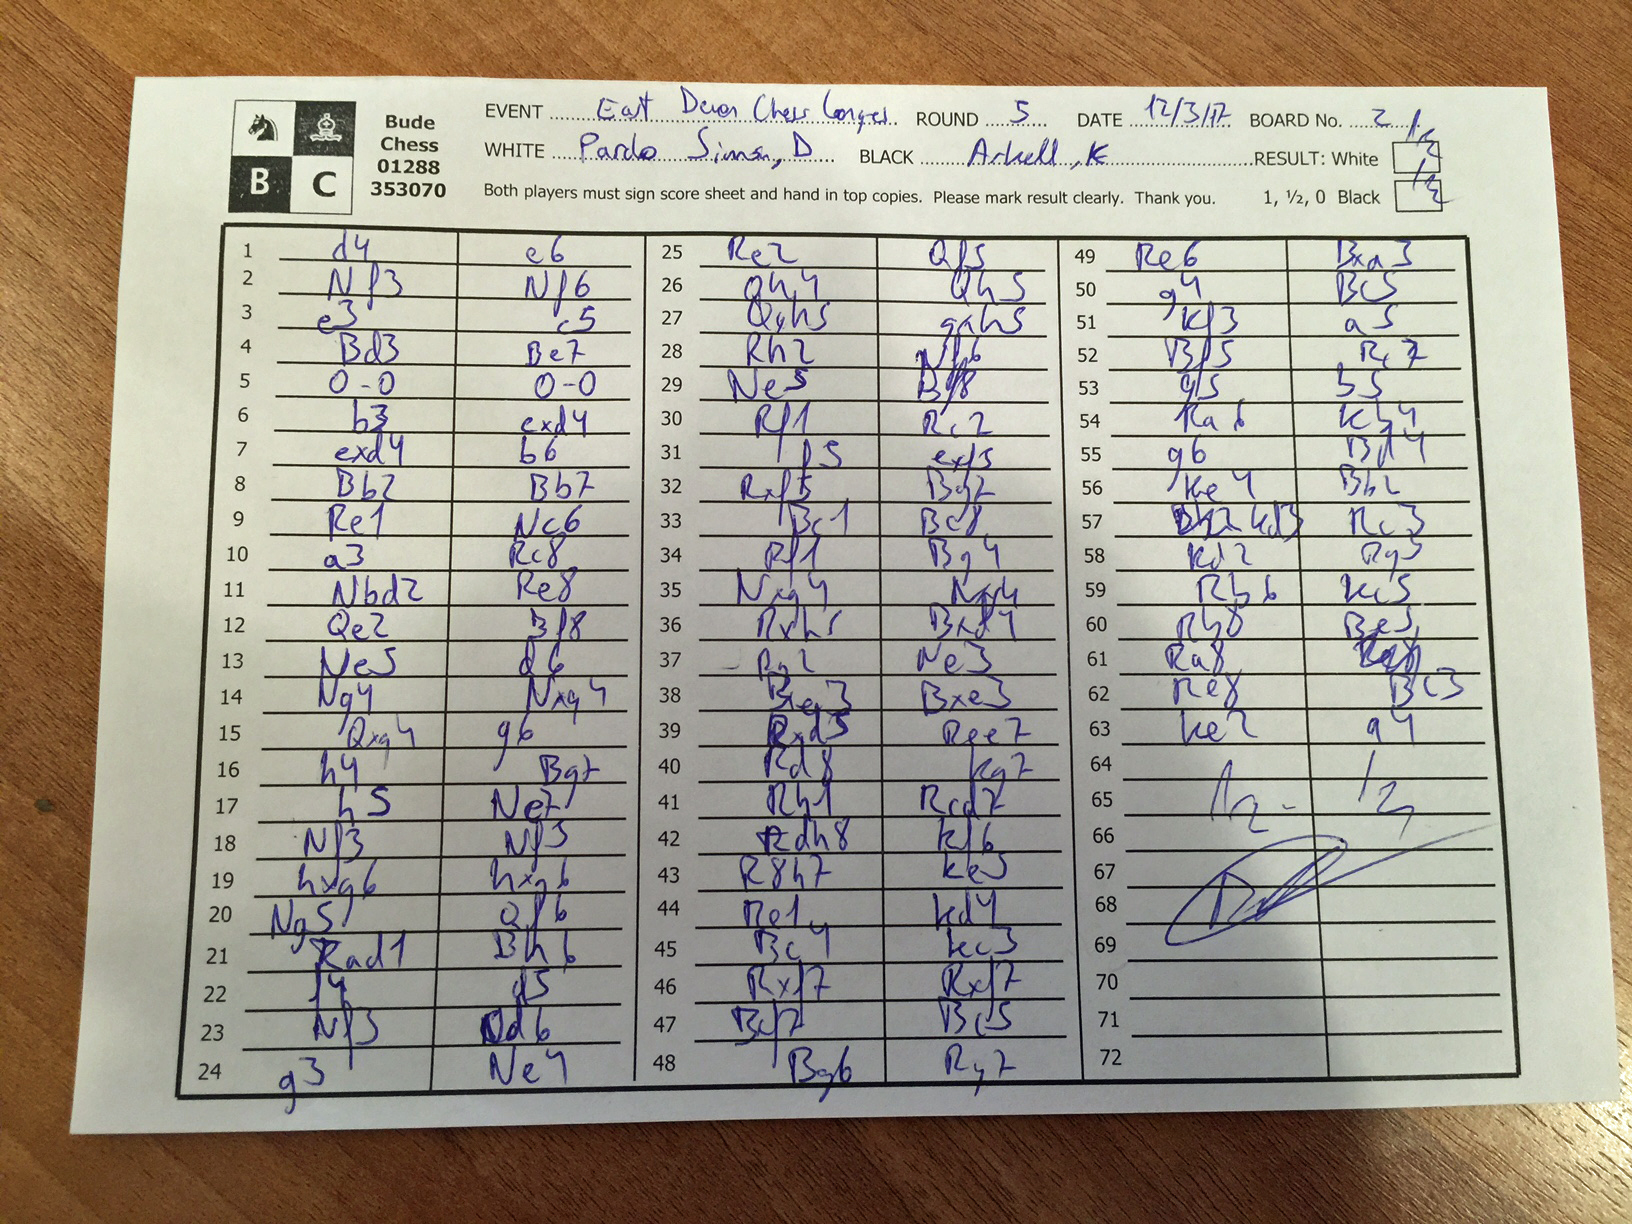 B C
Bude
Chess
01288
353070
EVENT East Devon Chess Congres ROUND 5 DATE 12/3/17 BOARD No. 2
WHITE Pardo Simon, D BLACK Arkell, K RESULT: White 1/2
Both players must sign score sheet and hand in top copies. Please mark result clearly. Thank you. 1, ½, 0 Black 1/2
1 d4 e6
2 Nf3 Nf6
3 e3 c5
4 Bd3 Be7
5 0-0 0-0
6 b3 cxd4
7 exd4 b6
8 Bb2 Bb7
9 Re1 Nc6
10 a3 Rc8
11 Nbd2 Re8
12 Qe2 Bf8
13 Ne5 d6
14 Ng4 Nxg4
15 Qxg4 g6
16 h4 Bg7
17 h5 Ne7
18 Nf3 Nf5
19 hxg6 hxg6
20 Ng5 Qf6
21 Rad1 Bh6
22 f4 d5
23 Nf3 Qd6
24 g3 Ne4
25 Re2 Qf5
26 Qh4 Qh5
27 Qxh5 gxh5
28 Rh2 Nf6
29 Ne5 Bf8
30 Rf1 Rc2
31 f5 exf5
32 Rxf5 Bg7
33 Bc1 Bc8
34 Rf1 Bg4
35 Nxg4 Nxg4
36 Rxh5 Bxd4
37 Kg2 Ne3
38 Bxe3 Bxe3
39 Rxd5 Ree7
40 Rd8 Kg7
41 Rh1 Rcd7
42 Rdh8 Kf6
43 R8h7 Ke5
44 Re1 Kd4
45 Bc4 Kc3
46 Rxf7 Rxf7
47 Bxf7 Bc5
48 Bg6 Rg7
49 Re6 Bxa3
50 g4 Bc5
51 Kf3 a5
52 Bf5 Rc7
53 g5 b5
54 Ra6 Kb4
55 g6 Bd4
56 Ke4 Bb2
57 Kd3 Rc3
58 Kd2 Rg3
59 Rb6 Kc5
60 Rb8 Be5
61 Ra8
62 Re8 Bc3
63 Ke2 a4
64
65 1/2 - 1/2
66
67
68
69
70
71
72